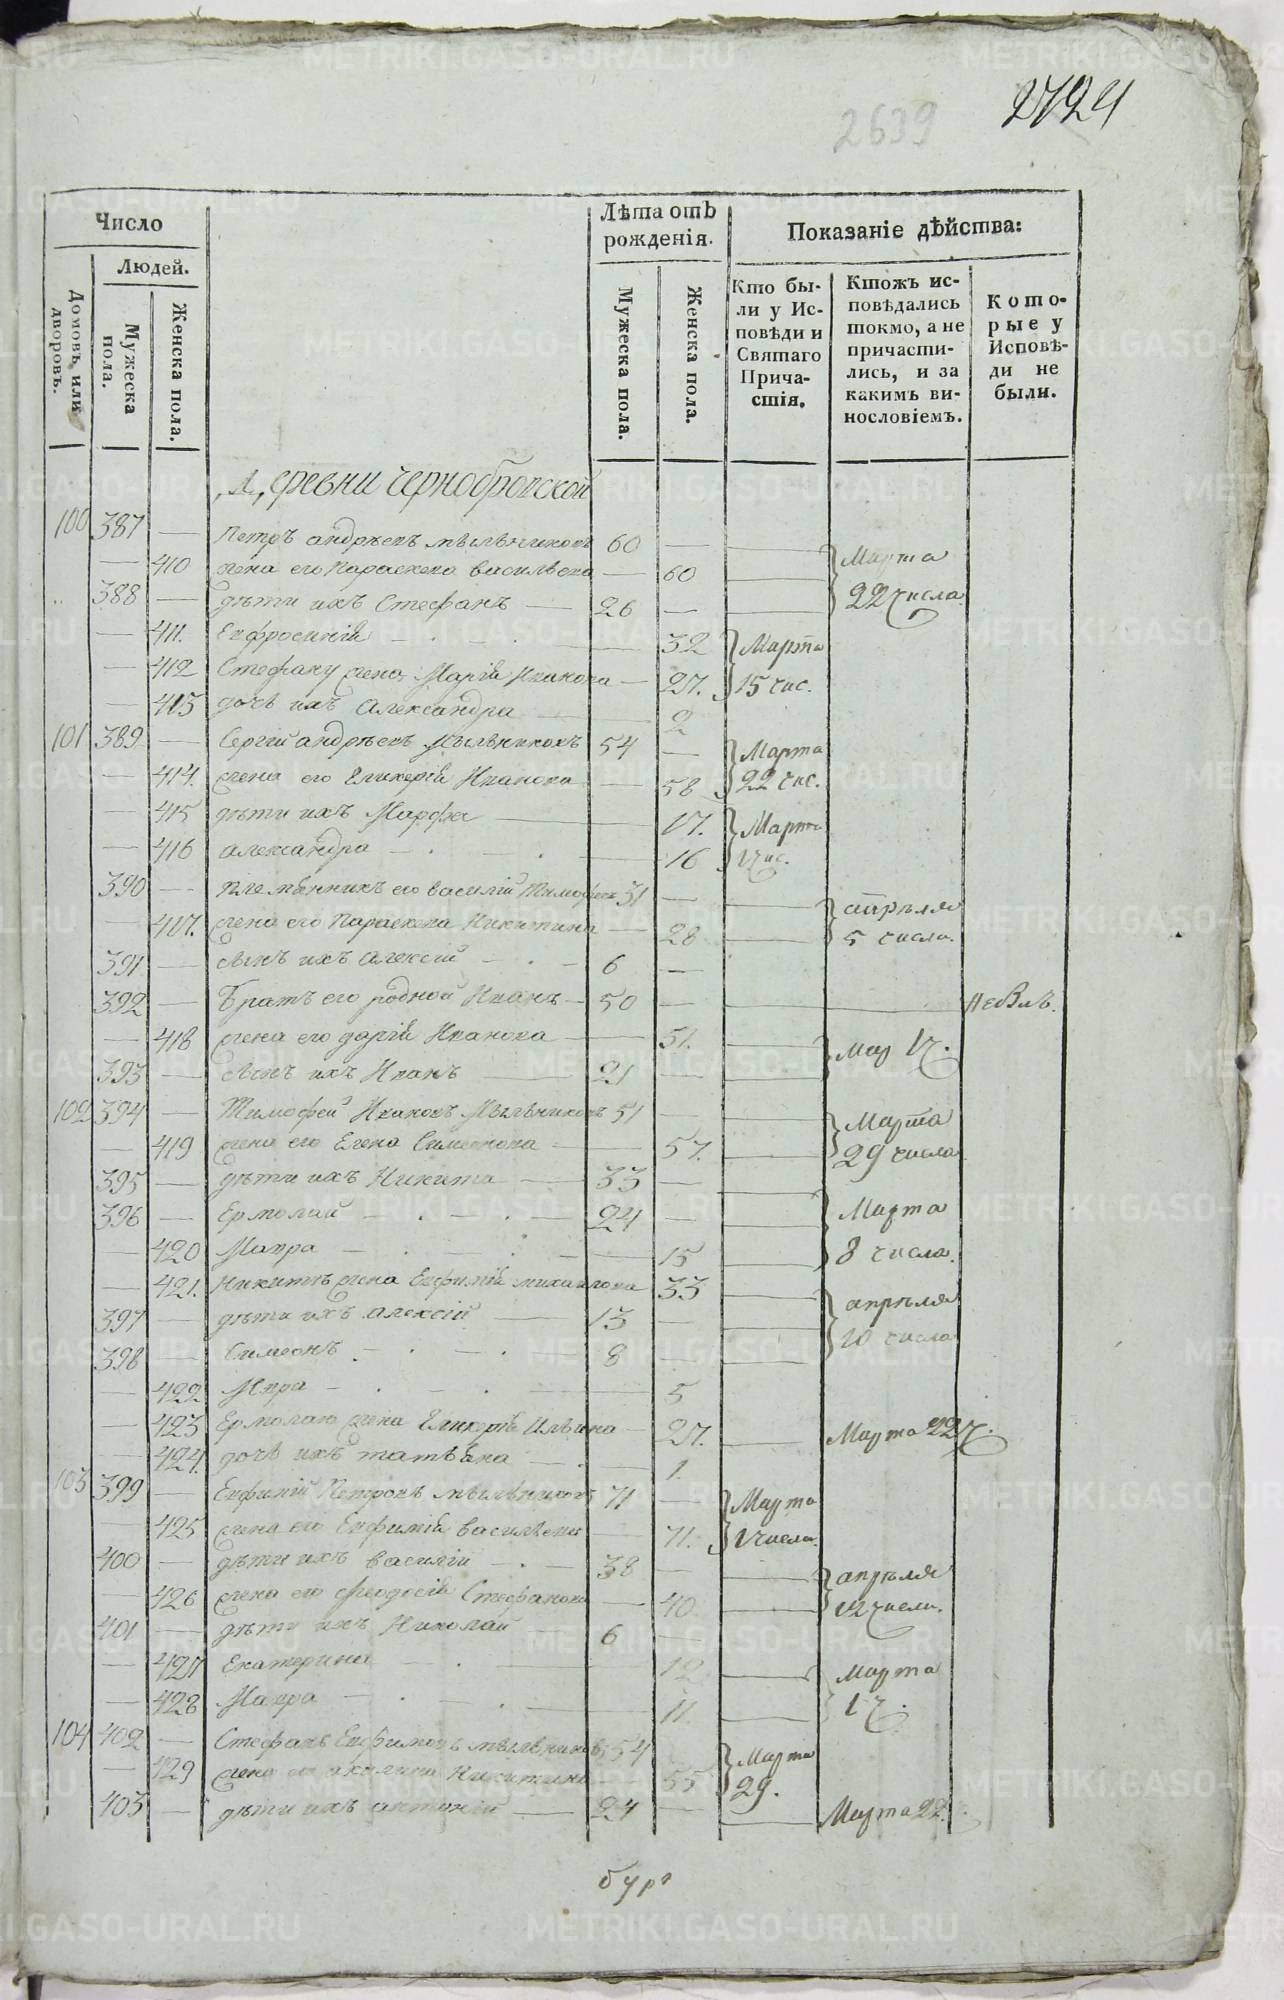 2639
2724
Число
Людей.
Домовъ или дворовъ.
Мужеска пола.
Женска пола.
Лѣта отъ рожденія.
Мужеска пола.
Женска пола.
Показаніе дѣйства:
Кто бы-
ли у Ис-
повѣди и
Святаго
Прича-
стія.
Ктожъ ис-
повѣдались
токмо, а не
причасти-
лись, и за
какимъ ви-
нословіемъ.
Кото-
рые у
Исповѣ-
ди не
были.
Деревни Чернобровской
100 387 — Петръ андрѣевъ мыльниковъ 60 —
— 410 жена его Параскева васильева — 60 Марта
388 — дѣти ихъ Стефанъ — 26 — 22 числа
— 411. Евфросинія — 32 Марта
— 412 Стефану жена Марія Иванова — 27. 15 чис.
— 413 дочь ихъ Александра — 2
101 389 — Сергій андрѣевъ Мыльниковъ 54 — Марта
— 414. жена его Гликерія Иванова — 58 22 чис.
— 415 дѣти ихъ Марфа — 17. Марта
— 416 александра — 16 1 чис.
390 — племянникъ его василій Тимофѣевъ 31 — апрѣля
— 417. жена его Параскева Никитина — 28 5 числа.
391 — сынъ ихъ алексій — 6 —
392 — Братъ его родной Иванъ — 50 — Небылъ.
— 418 жена его дарія Иванова — 51. Мар 1 ч.
393 — сынъ ихъ Иванъ — 21 —
102 394 — Тимофей Ивановъ Мыльниковъ 51 — Марта
— 419 жена его Елена Симеонова — 57. 29 числа
395 — дѣти ихъ Никита — 33 —
396 — Ермолай — 24 — Марта
— 420 Мавра — 15 8 числа.
— 421. Никитѣ жена Евфимія михаилова 33
397 — дѣти ихъ алексій — 13 — апрѣля
398 — Симеонъ — 8 — 10 числа
— 422 Мавра — 5
— 423 Ермолаю жена Гликерія Ильина — 27. Марта 22 ч.
— 424. дочь ихъ татьяна — 1.
103 399 — Евфимій Петровъ мыльниковъ 71 — Марта
425 жена его Евфимія васильева — 71. 1 числа.
400 — дѣти ихъ василій — 38 — апрѣля
— 426 жена его феодосія Стефанова — 40 12 числа.
401 — дѣти ихъ Николай 6 —
— 427 Екатерина — 12 Марта
— 428 Мавра — 11 1 ч.
104 402 — Стефанъ Евфимовъ мыльниковъ 54 Марта
— 429 жена его акилина Никитина — 55 29.
403 — дѣти ихъ антоній — 24 — Марта 22.
METRIKI.GASO-URAL.RU